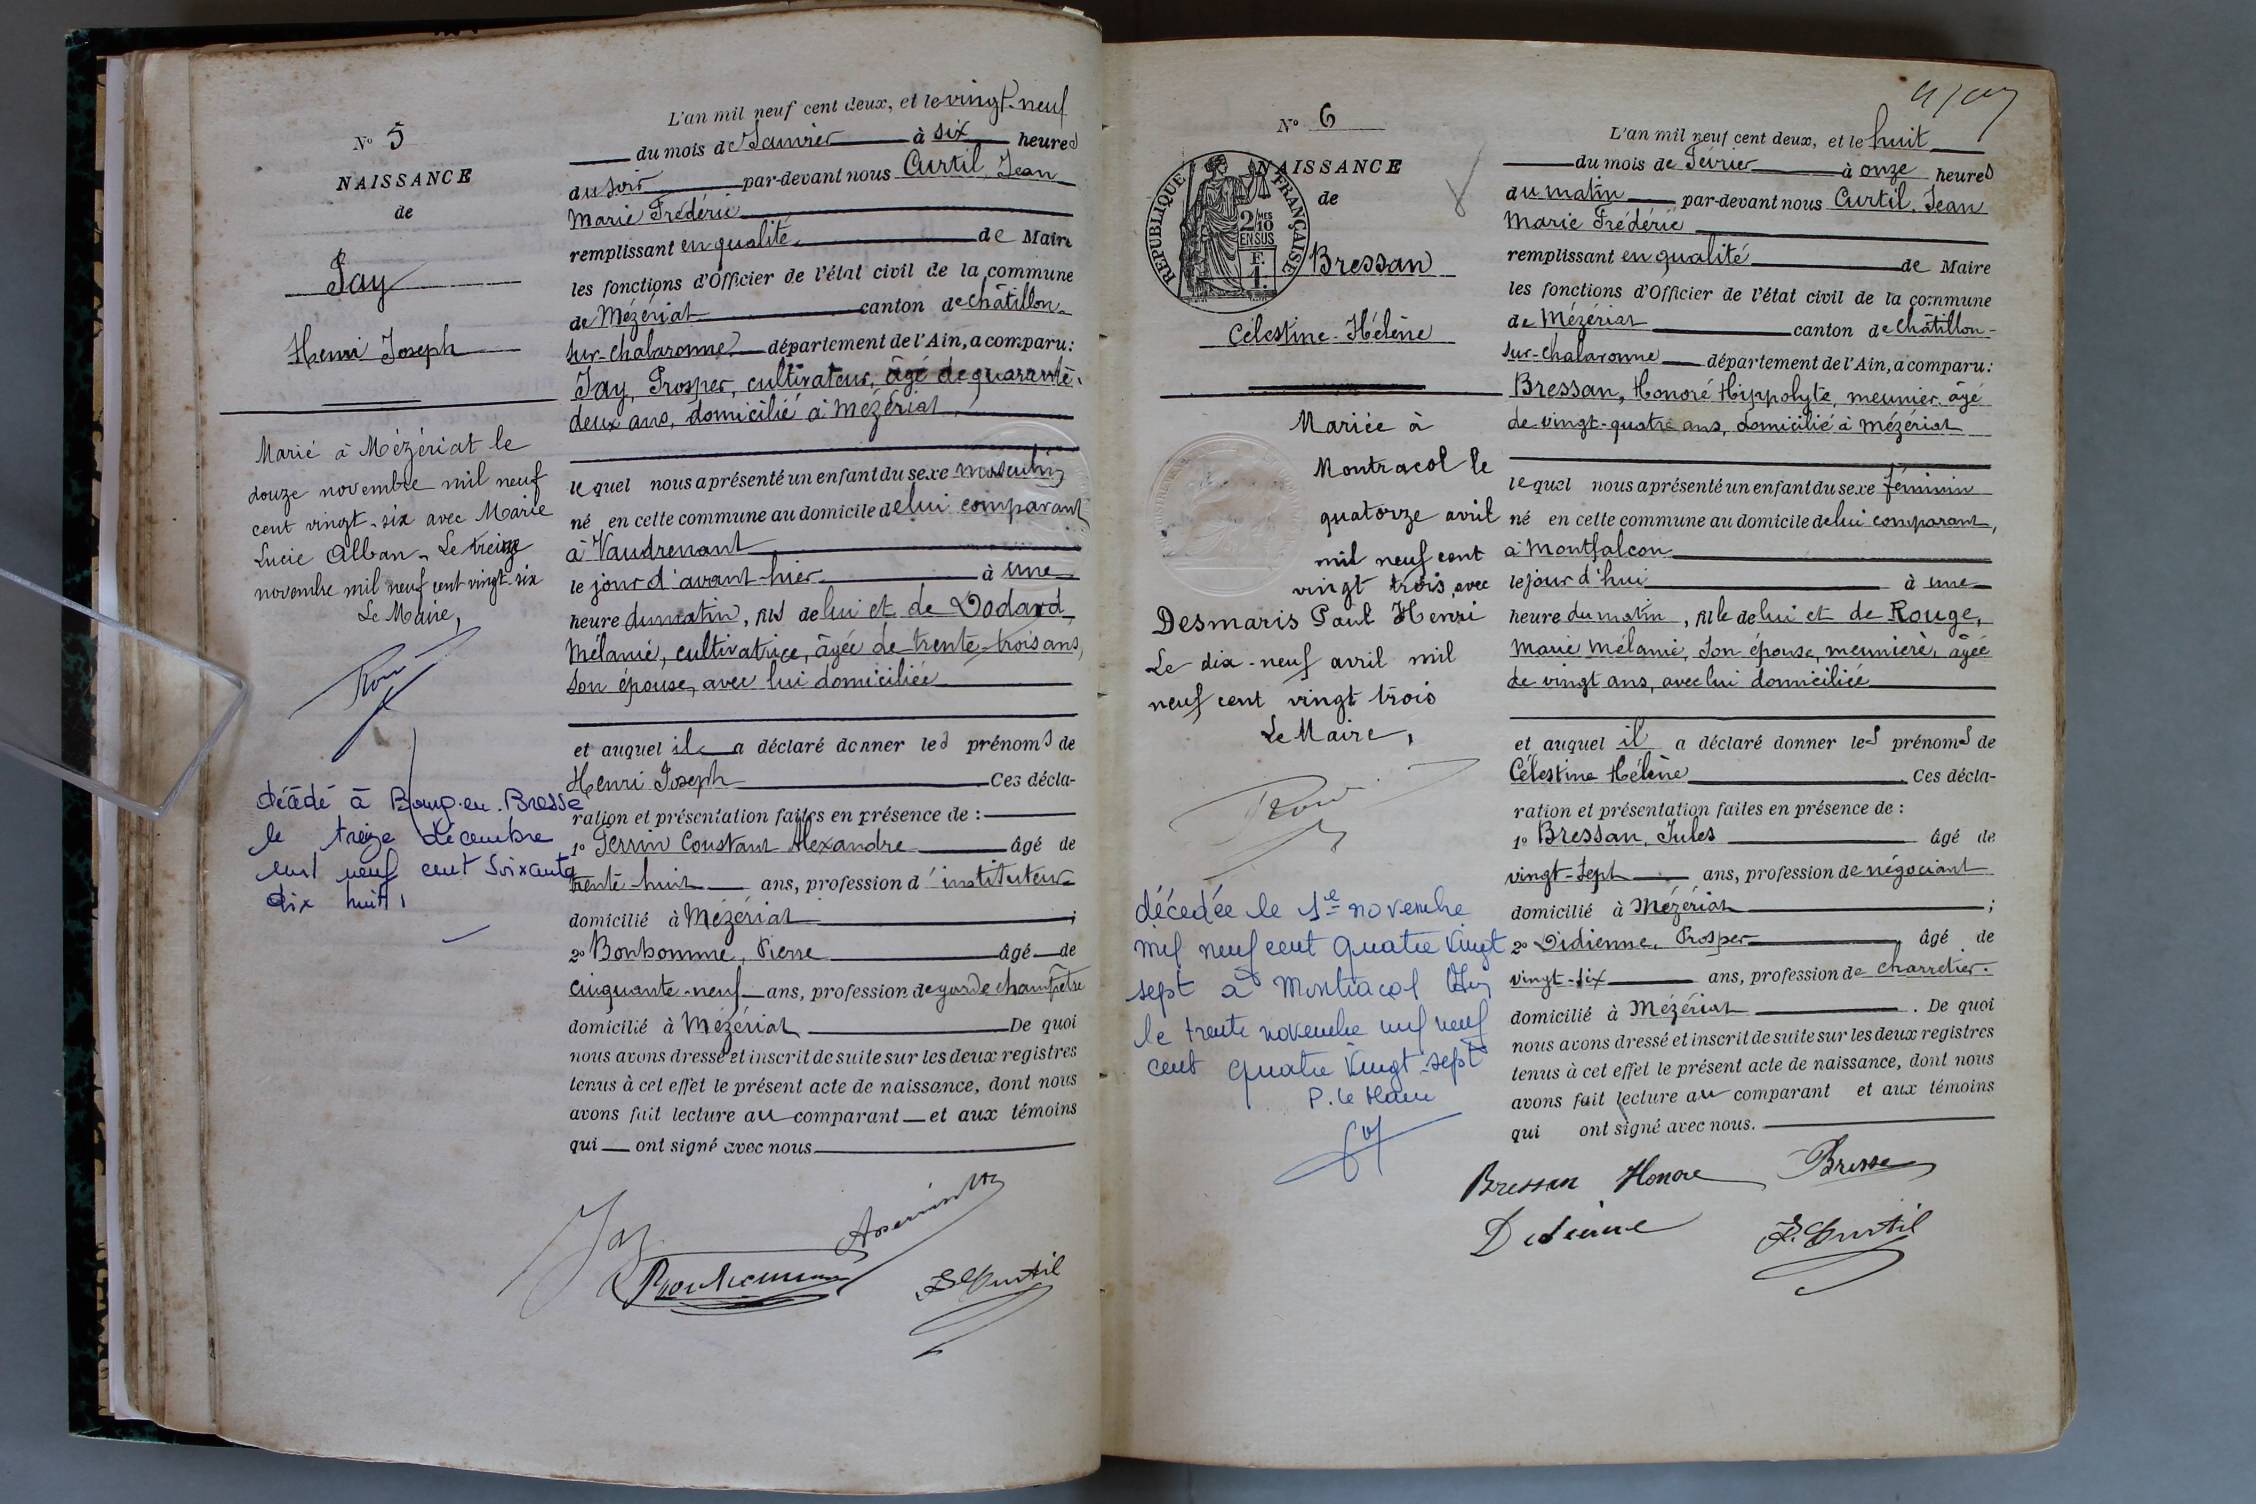 N° 5
NAISSANCE
de
Jay
Henri Joseph
Marié à Mézériat le
douze novembre mil neuf
cent vingt-six avec Marie
Lucie Alban - Le treize
novembre mil neuf cent vingt-six
Le Maire,
décédé à Bourg-en-Bresse
le treize décembre
mil neuf cent soixante
dix huit
L'an mil neuf cent deux, et le vingt-neuf
du mois de Janvier à six heures
du soir par-devant nous Curtil, Jean
Marie Frédéric
remplissant en qualité de Maire
les fonctions d'Officier de l'état civil de la commune
de Mézériat canton de Châtillon-
sur-Chalaronne département de l'Ain, a comparu:
Jay, Prosper, cultivateur, âgé de quarante-
deux ans, domicilié à Mézériat,
lequel nous a présenté un enfant du sexe masculin
né en cette commune au domicile de lui comparant
à Vaudrenant
le jour d'avant-hier à une
heure du matin, fils de lui et de Dodard
Mélanie, cultivatrice, âgée de trente-trois ans,
son épouse, avec lui domiciliée
et auquel il a déclaré donner les prénoms de
Henri Joseph Ces décla-
ration et présentation faites en présence de :
1° Perrin Constant Alexandre âgé de
trente-huit ans, profession d'instituteur
domicilié à Mézériat ;
2° Bonhomme, Pierre âgé de
cinquante-neuf ans, profession de garde champêtre
domicilié à Mézériat De quoi
nous avons dressé et inscrit de suite sur les deux registres
tenus à cet effet le présent acte de naissance, dont nous
avons fait lecture au comparant et aux témoins
qui ont signé avec nous
Jay
Bonhomme
Curtil
N° 6
NAISSANCE
de
RÉPUBLIQUE FRANÇAISE
2/10MES
EN SUS
F.
1.
Bressan
Célestine-Hélène
Mariée à
Montracol le
quatorze avril
mil neuf cent
vingt trois, avec
Desmaris Paul Henri
Le dix-neuf avril mil
neuf cent vingt trois
Le Maire,
décédée le 1er novembre
mil neuf cent quatre vingt
sept à Montracol
le trente novembre mil neuf
cent quatre vingt-sept
P. le Maire
L'an mil neuf cent deux, et le huit
du mois de Février à onze heures
du matin par-devant nous Curtil, Jean
Marie Frédéric
remplissant en qualité de Maire
les fonctions d'Officier de l'état civil de la commune
de Mézériat canton de Châtillon-
sur-Chalaronne département de l'Ain, a comparu:
Bressan, Honoré Hippolyte, meunier, âgé
de vingt-quatre ans, domicilié à Mézériat
lequel nous a présenté un enfant du sexe féminin
né en cette commune au domicile de lui comparant,
à Montfalcon
le jour d'hui à une
heure du matin, fille de lui et de Rouge,
Marie Mélanie, son épouse, meunière, âgée
de vingt ans, avec lui domiciliée
et auquel il a déclaré donner les prénoms de
Célestine Hélène. Ces décla-
ration et présentation faites en présence de :
1° Bressan, Jules âgé de
vingt-sept ans, profession de négociant
domicilié à Mézériat ;
2° Didienne, Prosper, âgé de
vingt-six ans, profession de charretier.
domicilié à Mézériat. De quoi
nous avons dressé et inscrit de suite sur les deux registres
tenus à cet effet le présent acte de naissance, dont nous
avons fait lecture au comparant et aux témoins
qui ont signé avec nous.
Bressan Honore
Didienne
Curtil